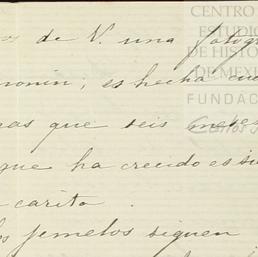 de V. una fotogr
monin, es hecha cua
nas que seis meses
que ha crecido es su
carita.
los jemelos siguen
CENTRO
ESTUDIO
DE HISTO
DE MEXI
FUNDAC